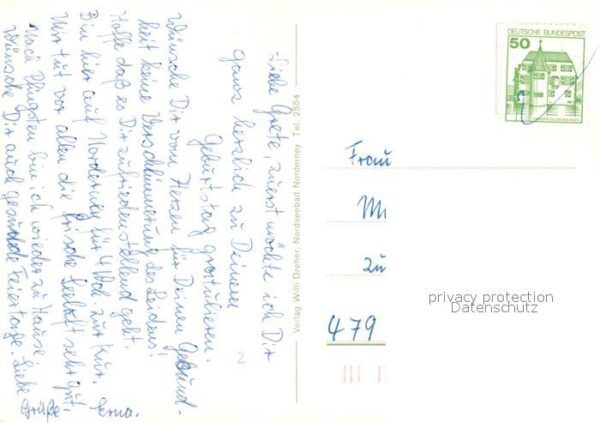 Liebe Grete, zuerst möchte ich Dir
ganz herzlich zu Deinem
Geburtstag gratulieren.
Wünsche Dir vom Herzen für Deinen Gesund-
heit keine Verschlimmerung des Leidens!
Hoffe daß es Dir zufriedenstellend geht.
Bin hier auf Norderney für 4 Wch. zur Kur.
Mir tut vor allen die frische Seeluft sehr gut.
Nach Pfingsten bin ich wieder zu Hause u.
Wünsche Dir auch gesunde Feiertage. Liebe
Grüße Erna.
2
Verlag Willi Dreher, Nordseebad Norderney Tel. 2554
DEUTSCHE BUNDESPOST
50
Frau
Mi
zu
479
privacy protection
Datenschutz